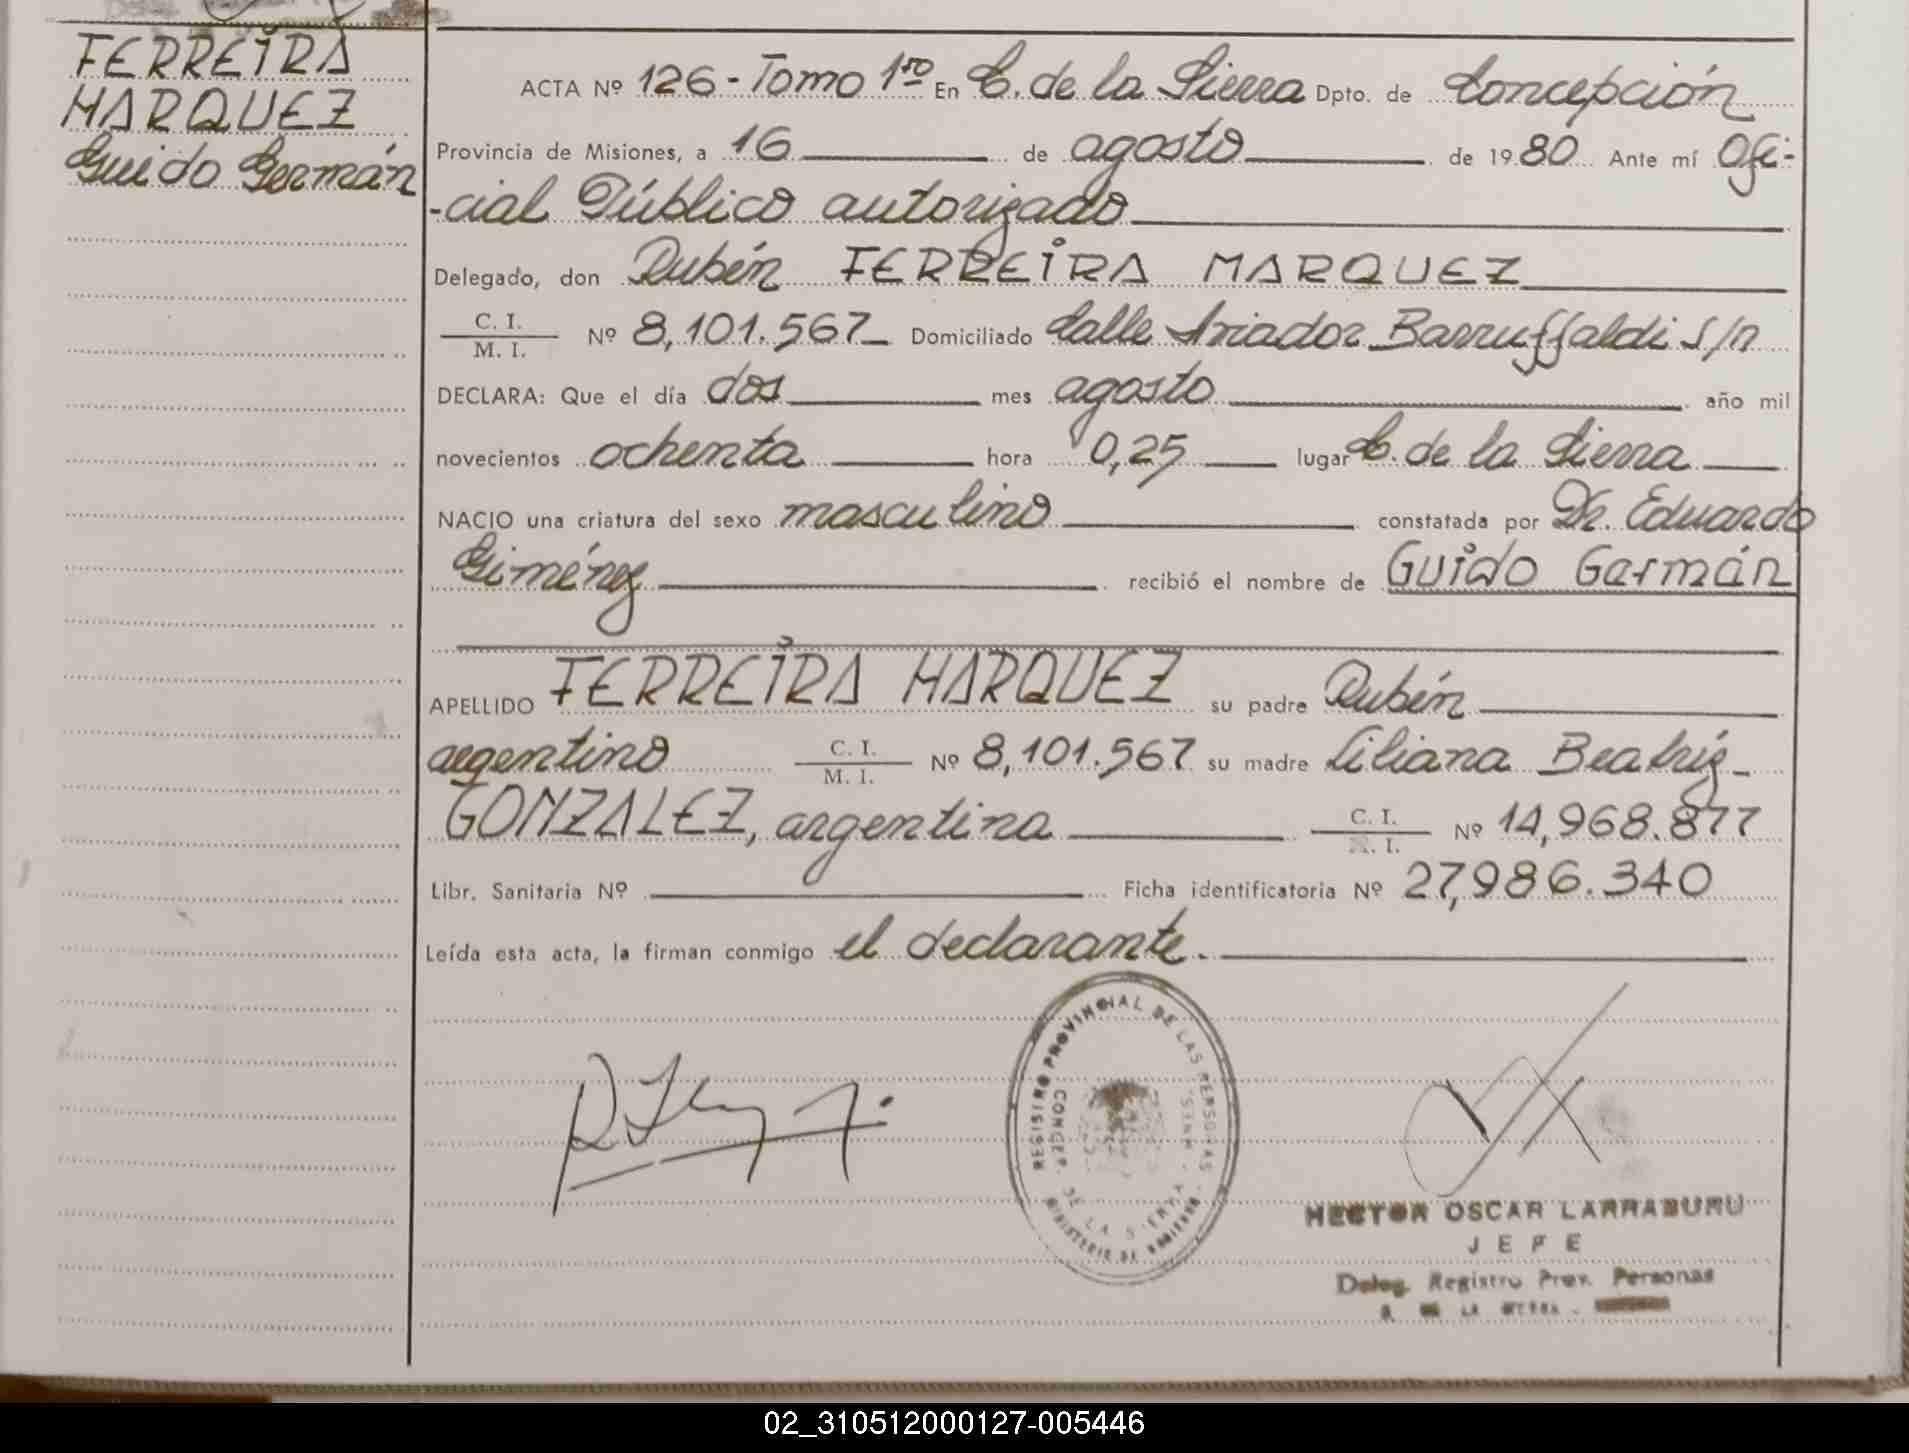 FERREIRA
MARQUEZ
Guido Germán
ACTA Nº 126 - Tomo 1ro En C. de la Sierra Dpto. de Concepción
Provincia de Misiones, a 16 de agosto de 1980 Ante mí Ofi-
-cial Público autorizado
Delegado, don Rubén FERREIRA MARQUEZ
C. I.
M. I. Nº 8,101.567 Domiciliado Calle Amador Barruffaldi S/n
DECLARA: Que el día dos mes agosto año mil
novecientos ochenta hora 0,25 lugar C. de la Sierra
NACIO una criatura del sexo masculino constatada por Dr. Eduardo
Giménez recibió el nombre de Guido Germán
APELLIDO FERREIRA MARQUEZ su padre Rubén
argentino C. I.
M. I. Nº 8,101.567 su madre Liliana Beatriz
GONZALEZ, argentina C. I.
M. I. Nº 14,968.877
Libr. Sanitaria Nº Ficha identificatoria Nº 27,986.340
Leída esta acta, la firman conmigo el declarante.
REGISTRO PROVINCIAL DE LAS PERSONAS
CONCEP. DE LA SIERRA - MNES.
MINISTERIO DE
HECTOR OSCAR LARRABURU
JEFE
Deleg. Registro Prov. Personas
DE LA SIERRA -
02_310512000127-005446